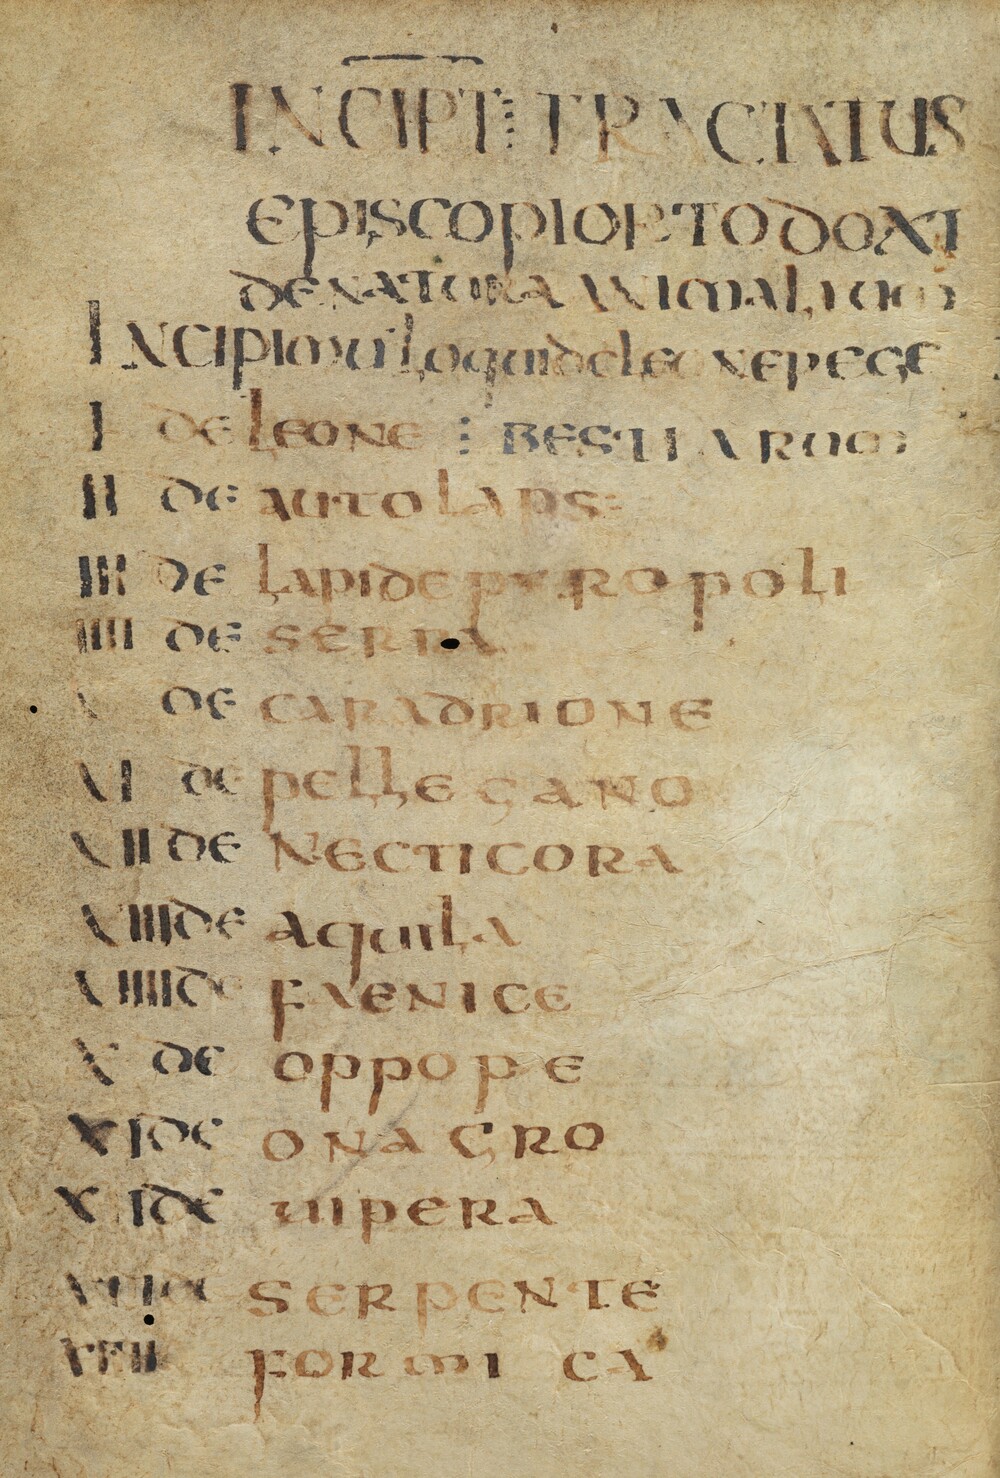 INCIPT⁝ TRACTATUS
EPISCOPI ORTODOXI
DE NATURA ANIMALIUM
INCIPIMUS LOQUI DE LEONE REGE
I DE LEONE ⁝ BESTIARUM
II DE AUTOLAPS:
III DE LAPIDE PYROPOLI
IIII DE SERRA
V DE CARADRIONE
VI DE PELLECANO
VII DE NECTICORA
VIII DE AQUILA
VIIII DE FAENICE
X DE OPPOPE
XI DE ONAGRO
XII DE UIPERA
XIII DE SERPENTE
XIIII FORMICA